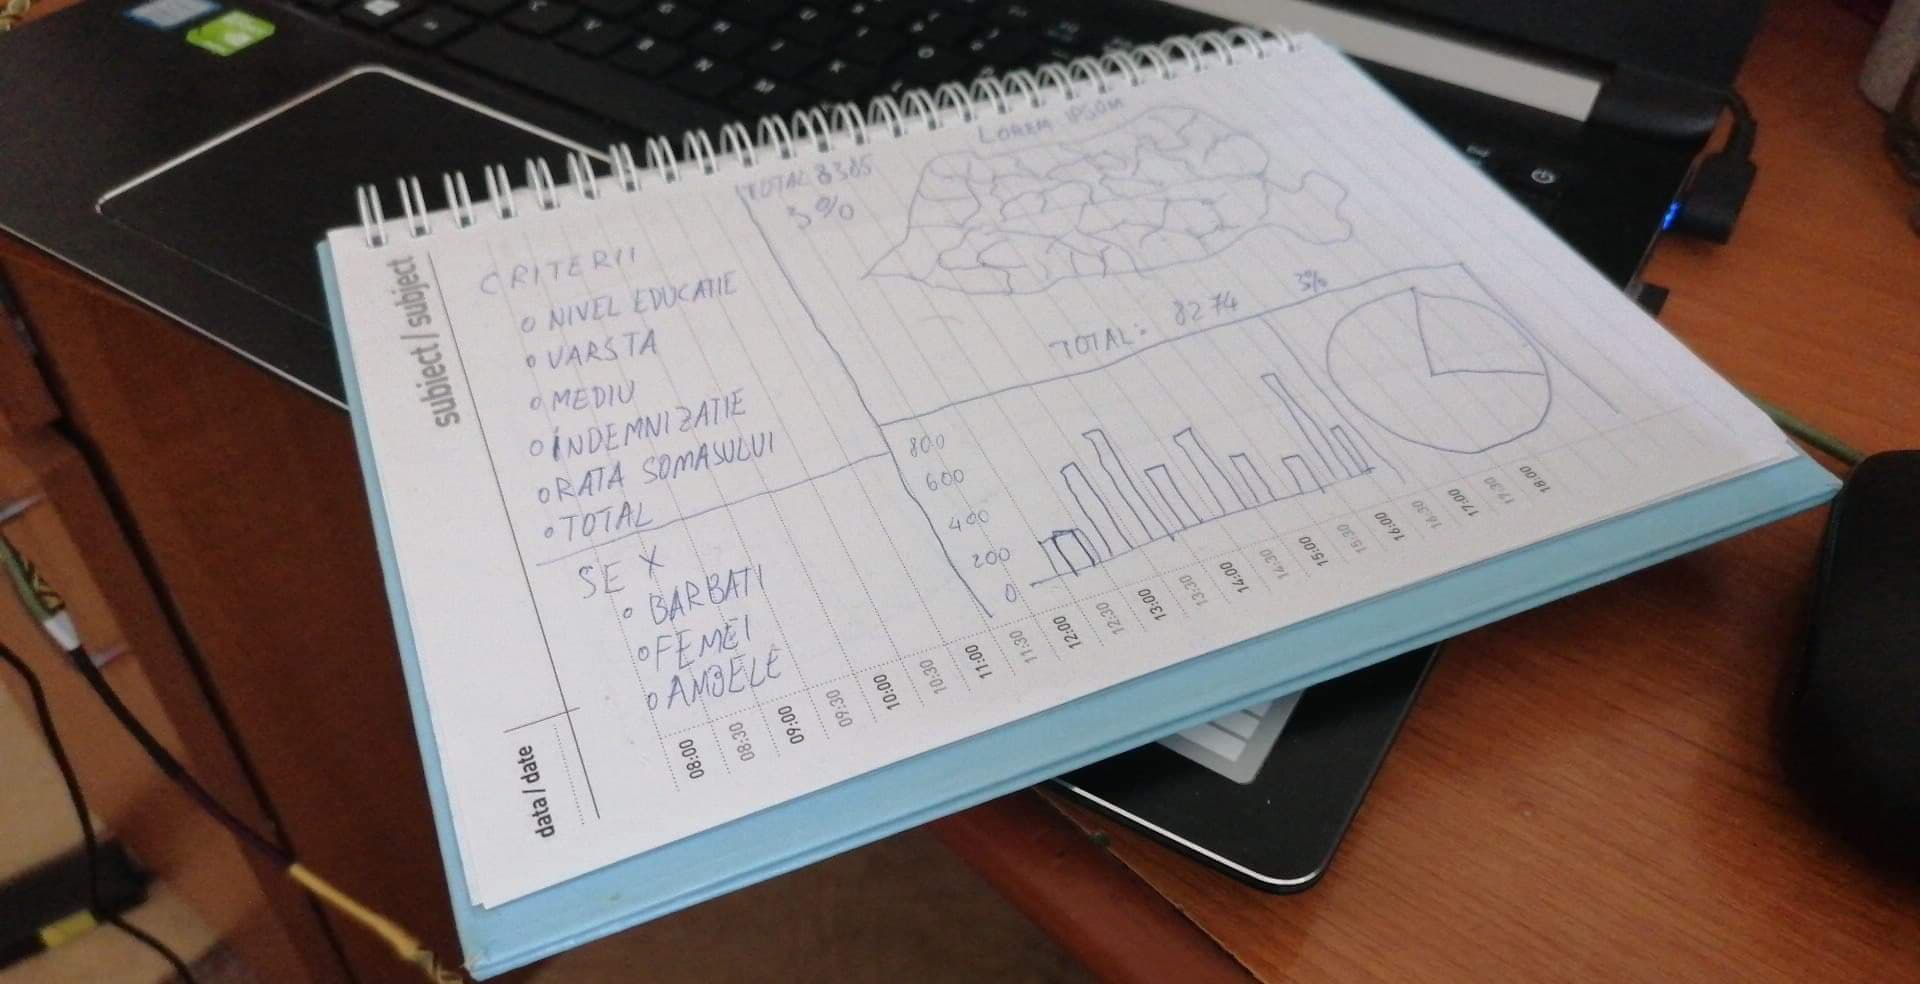 subiect / subject
CRITERII
NIVEL EDUCATIE
VARSTA
MEDIU
INDEMNIZATIE
RATA SOMASULUI
TOTAL
SEX
BARBATI
FEMEI
AMBELE
TOTAL 8385
3%
LOREM IPSOM
TOTAL: 8274
3%
800
600
400
200
0
data / date
08:00
08:30
09:00
09:30
10:00
10:30
11:00
11:30
12:00
12:30
13:00
13:30
14:00
14:30
15:00
15:30
16:00
16:30
17:00
17:30
18:00